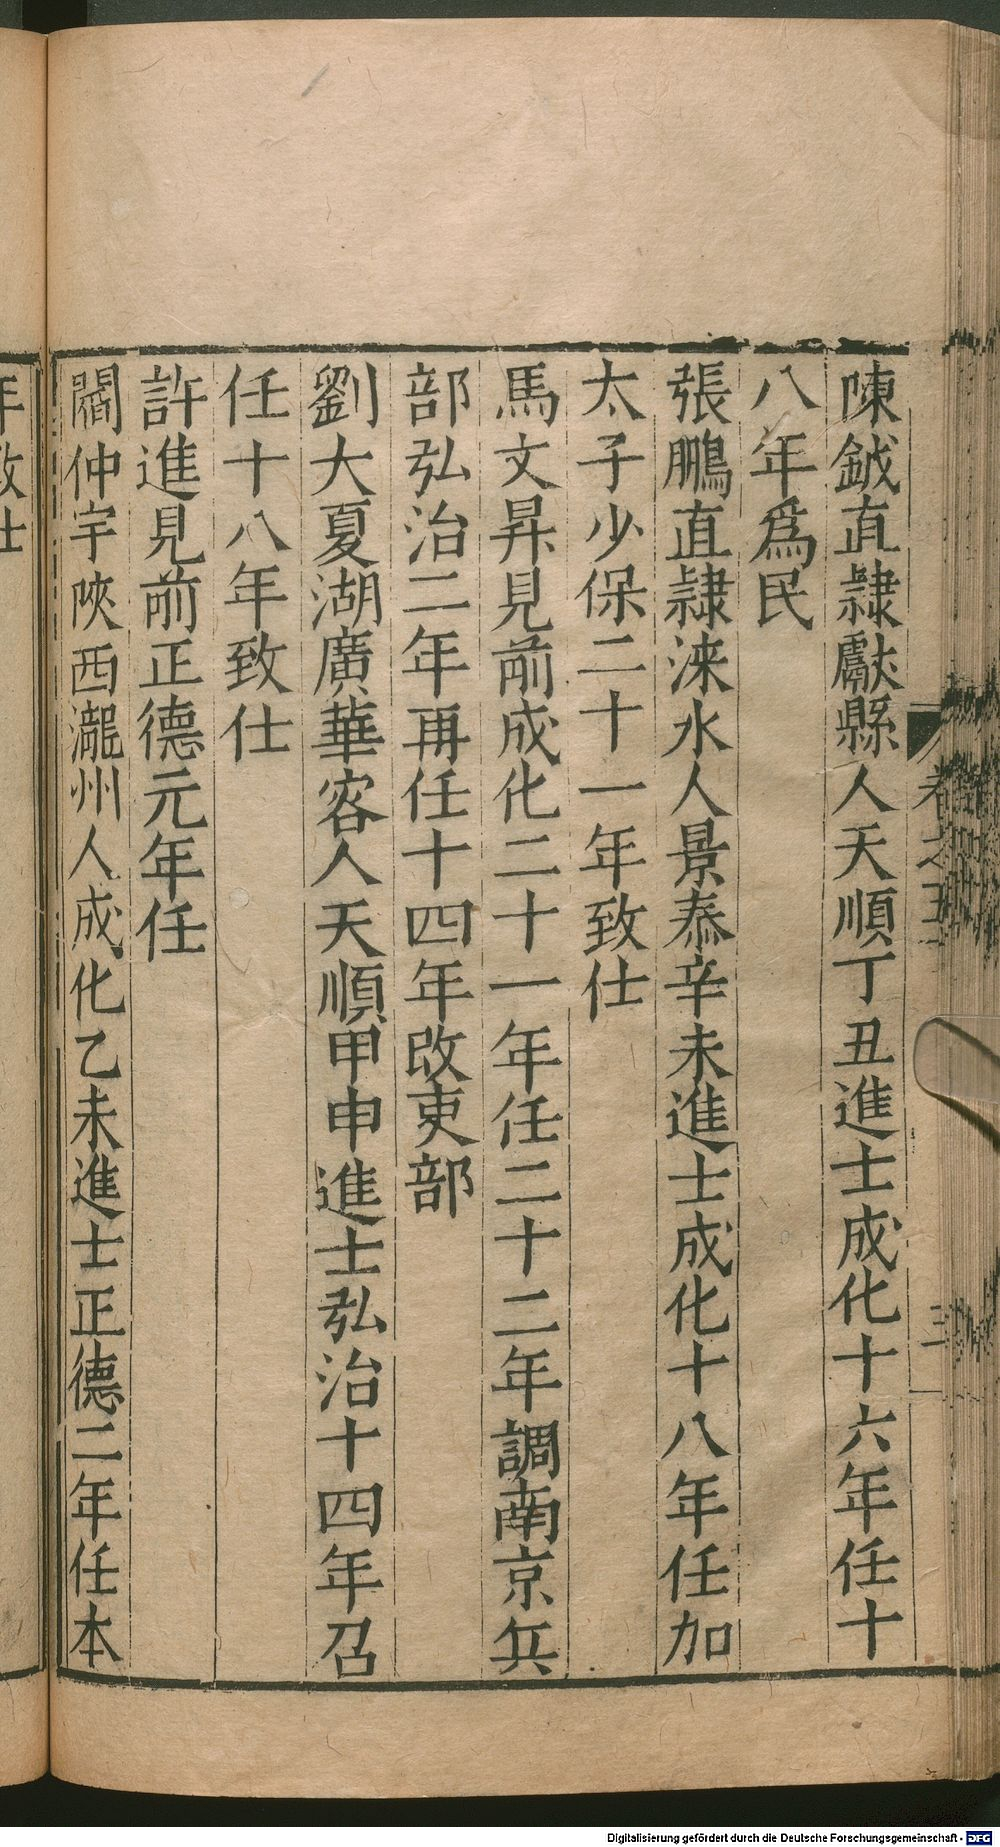 陳鉞直隸獻縣人天順丁丑進士成化十六年任十
八年爲民
張鵬直隸淶水人景泰辛未進士成化十八年任加
太子少保二十一年致仕
馬文昇見前成化二十一年任二十二年調南京兵
部弘治二年再任十四年改吏部
劉大夏湖廣華容人天順甲申進士弘治十四年召
任十八年致仕
許進見前正德元年任
閻仲宇陝西瀧州人成化乙未進士正德二年任本
卷之五
三
年致仕
Digitalisierung gefördert durch die Deutsche Forschungsgemeinschaft - DFG